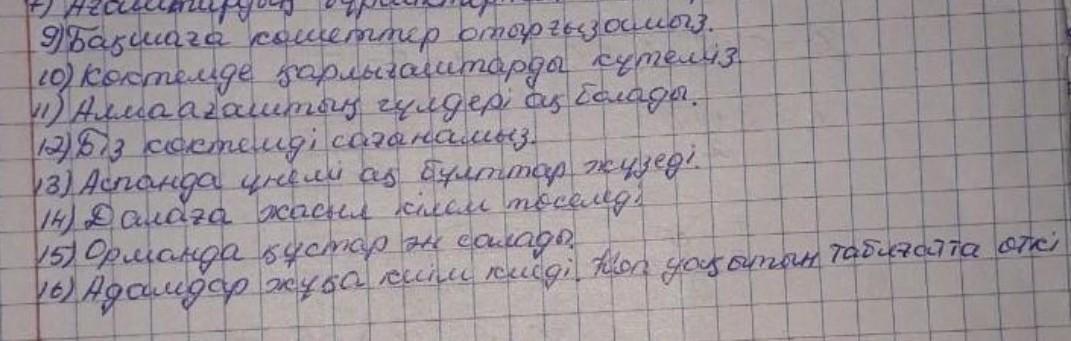 7) Ағаштардың бүршіктер
9) Бақшаға көшеттер отырғызамыз.
10) Көктемде қарлығаштарды күтеміз.
11) Алмаағаштың гүлдері ақ болады.
12) Біз көктемді сағанамыз.
13) Аспанда үнемі ақ бұлттар жүзеді.
14) Далаға жасыл кілем төселеді
15) Орманда құстар ән салады.
16) Адамдар жұқа киім киеді. Көп уақытын табиғатта өткі